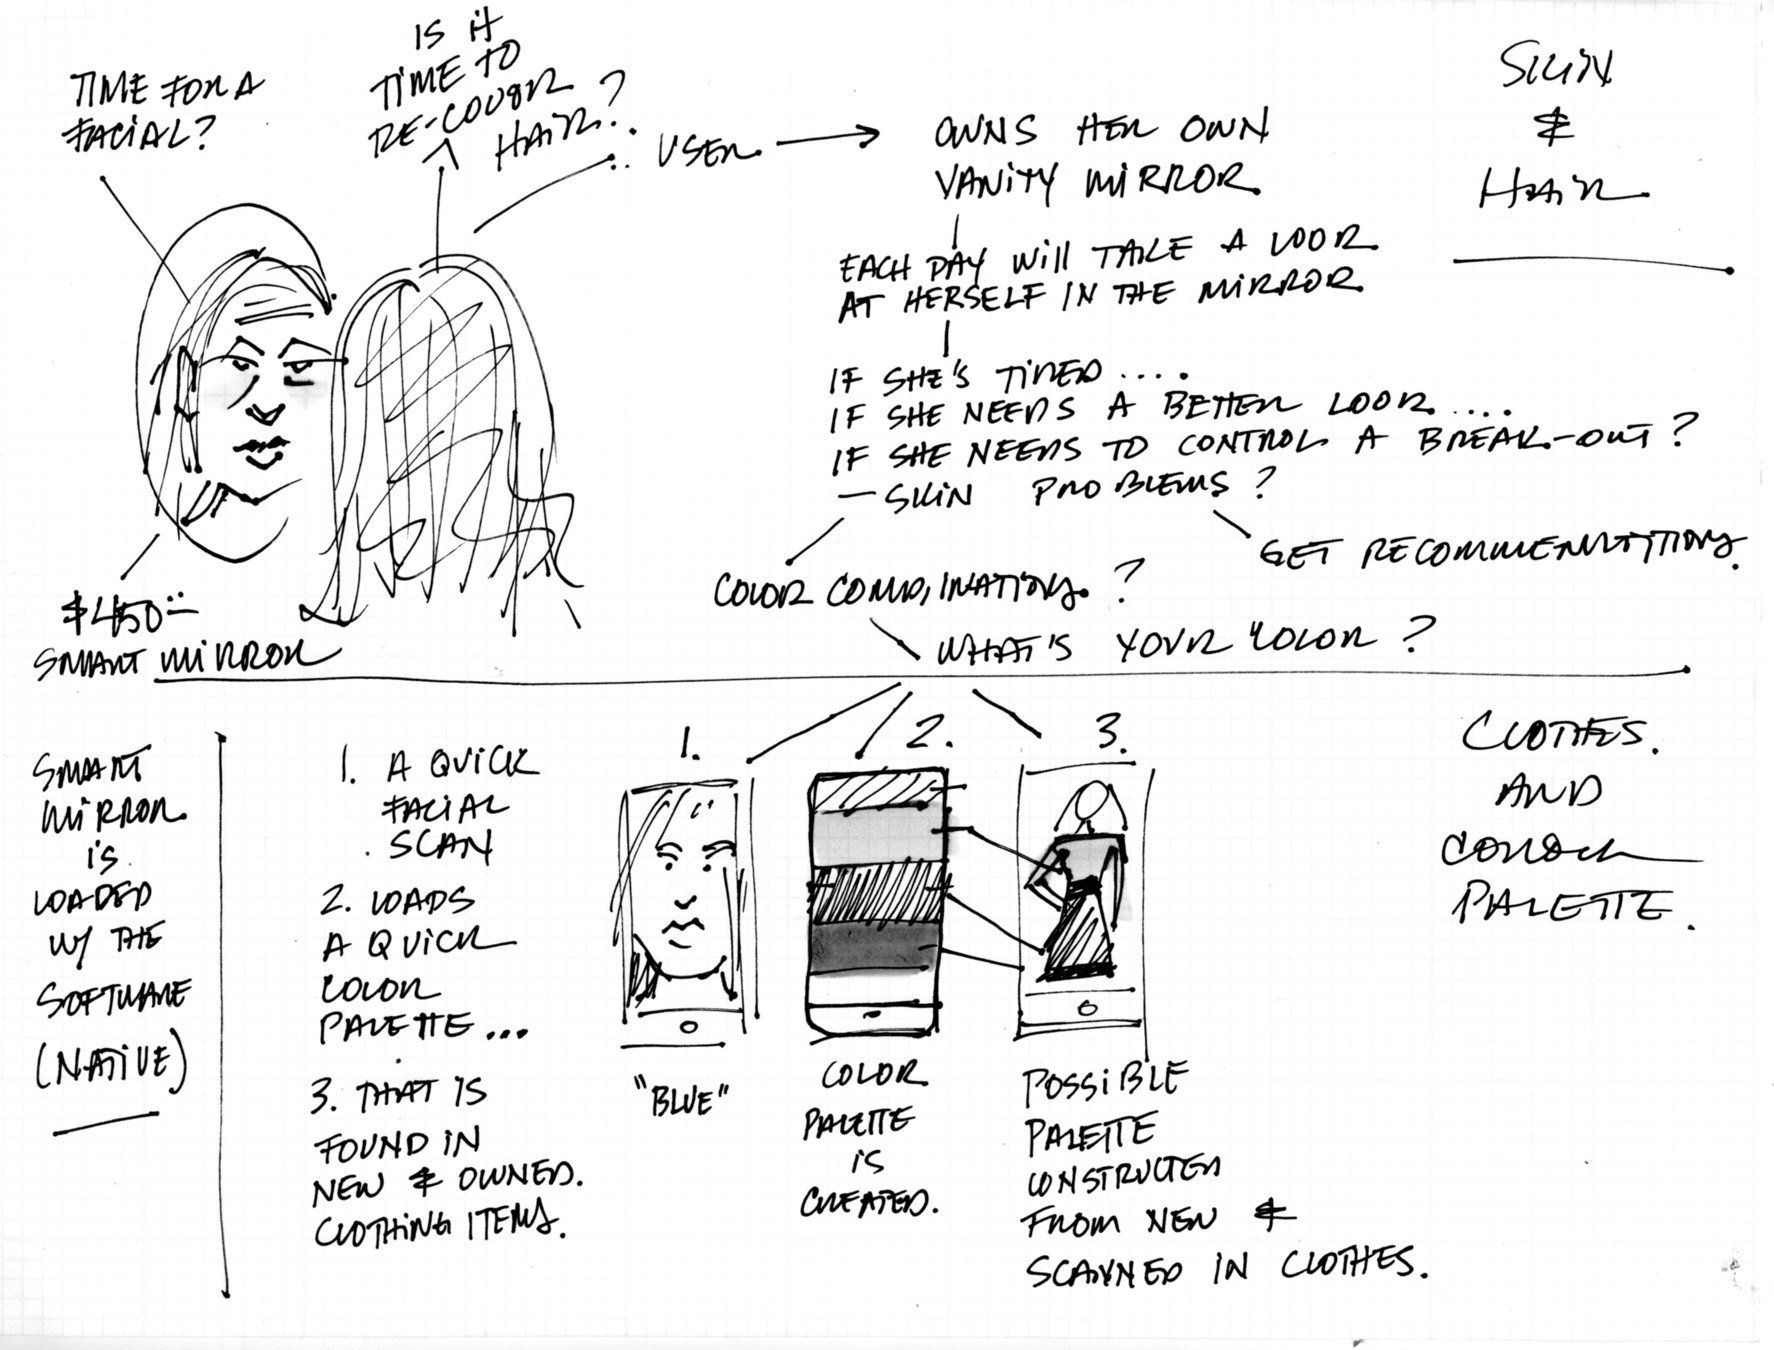 TIME FOR A
FACIAL?
IS IT
TIME TO
RE-COLOR
HAIR?
USER
OWNS HER OWN
VANITY MIRROR
EACH DAY WILL TAKE A LOOK
AT HERSELF IN THE MIRROR
IF SHE'S TIRED ....
IF SHE NEEDS A BETTER LOOK ....
IF SHE NEEDS TO CONTROL A BREAK-OUT?
— SKIN PROBLEMS?
GET RECOMMENDATIONS.
COLOR COMBINATIONS.?
WHAT'S YOUR COLOR?
SKIN
&
HAIR
$450
SMART MIRROR
SMART
MIRROR
is
LOADED
W/ THE
SOFTWARE
(NATIVE)
1. A QUICK
FACIAL
SCAN
2. LOADS
A QUICK
COLOR
PALETTE...
3. THAT IS
FOUND IN
NEW & OWNED.
CLOTHING ITEMS.
1.
2.
3.
"BLUE"
COLOR
PALETTE
IS
CREATED.
POSSIBLE
PALETTE
CONSTRUCTED
FROM NEW &
SCANNED IN CLOTHES.
CLOTHES.
AND
PALETTE.